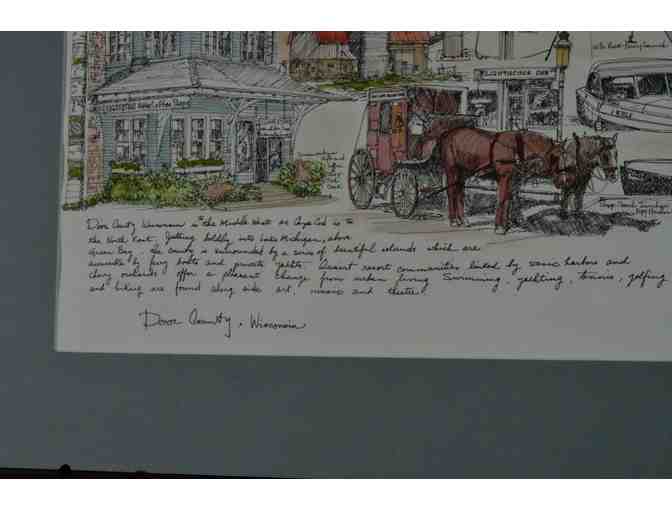 LIGHTHOUSE INN
Door County Wisconsin is to the Middle West as Cape Cod is to
the North East. Jutting boldly into Lake Michigan, above
Green Bay. The county is surrounded by a series of beautiful islands which are
accessible by ferry boats and private yachts. Quaint resort communities linked by scenic harbors and
cherry orchards offer a pleasant change from urban living. Swimming, yachting, tennis, golfing
and biking are found along side art, music and theatre.
Door County, Wisconsin